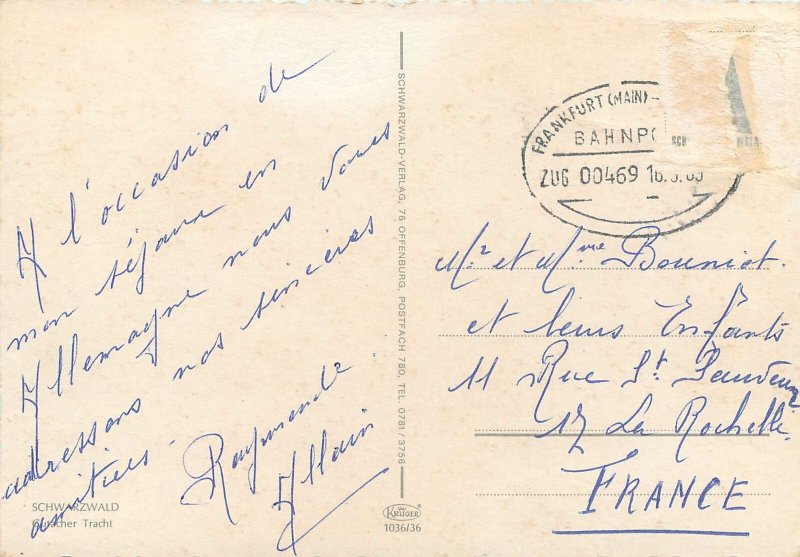 A l'occasion de
mon séjour en
Allemagne nous vous
adressons nos sincères
amitiés
Raymonde
Allain
SCHWARZWALD
Gutacher Tracht
SCHWARZWALD-VERLAG, 76 OFFENBURG, POSTFACH 780, TEL. 0781/3756
KRÜGER
1036/36
FRANKFURT (MAIN) -
BAHNPO
ZUG 00469
Mr et Mme Bouniot
et leurs Enfants
11 Rue St
17 La Rochelle
FRANCE